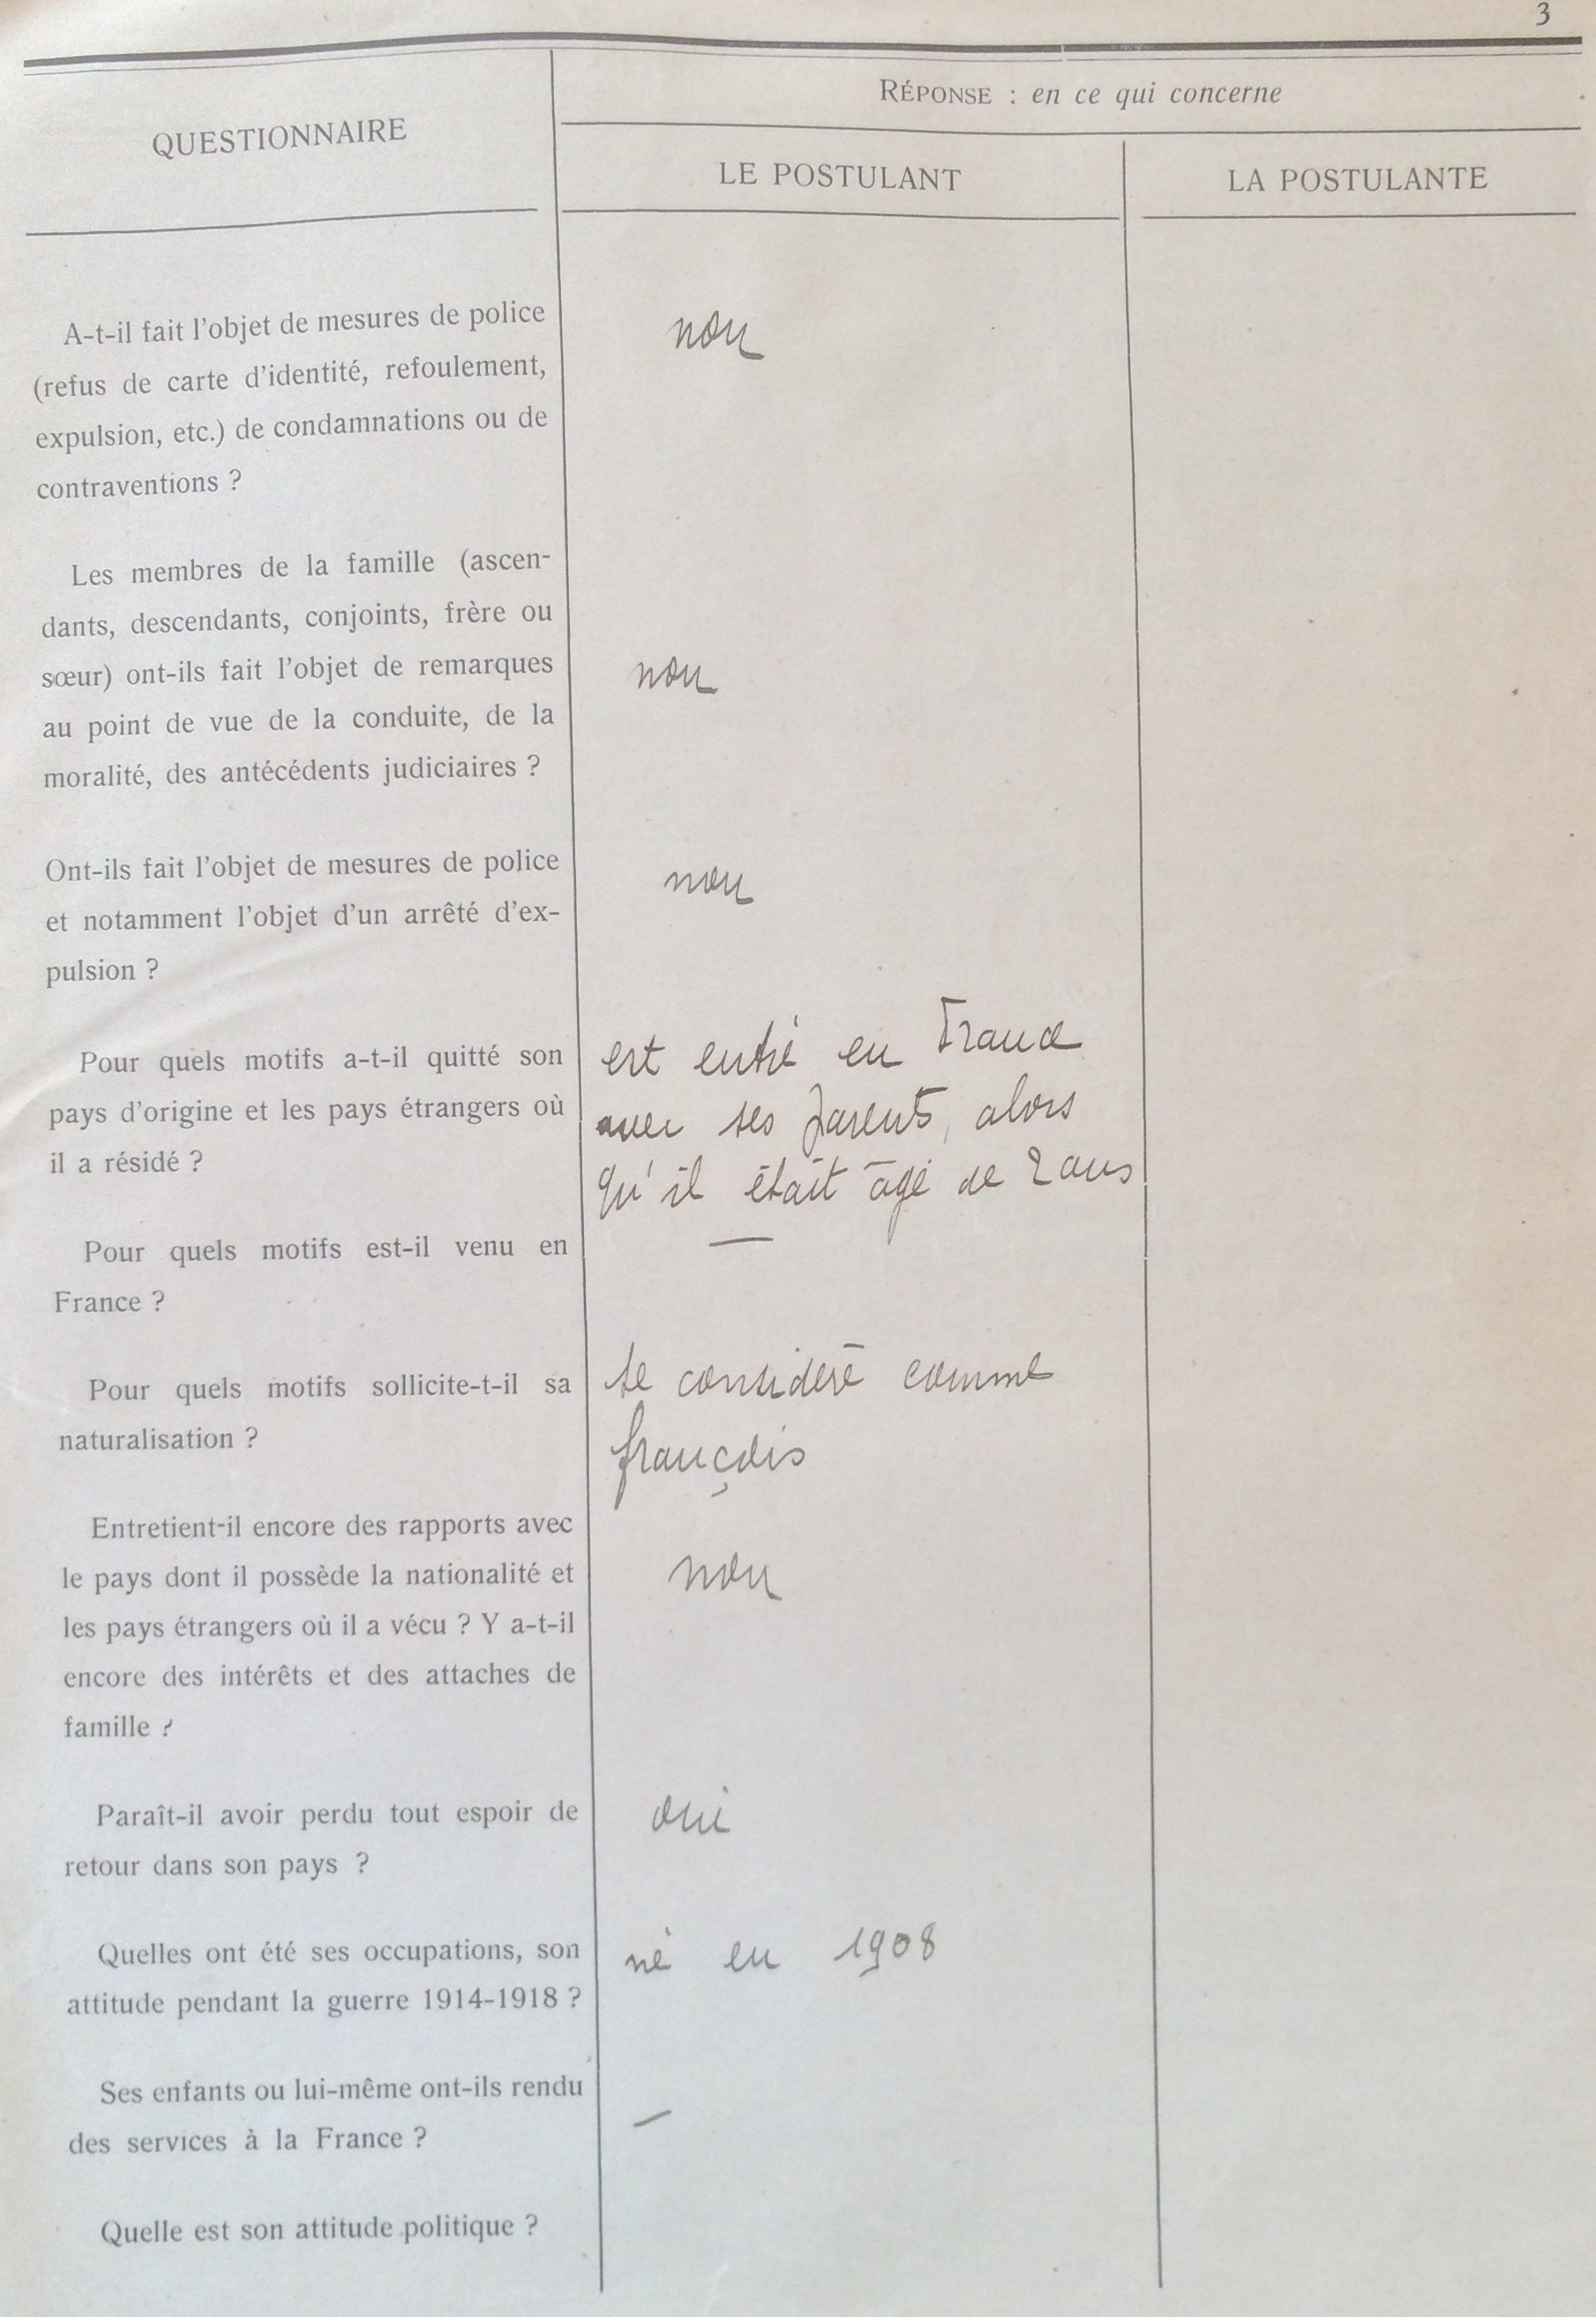 3
QUESTIONNAIRE
RÉPONSE : en ce qui concerne
LE POSTULANT
LA POSTULANTE
A-t-il fait l'objet de mesures de police
(refus de carte d'identité, refoulement,
expulsion, etc.) de condamnations ou de
contraventions ?
non
Les membres de la famille (ascen-
dants, descendants, conjoints, frère ou
sœur) ont-ils fait l'objet de remarques
au point de vue de la conduite, de la
moralité, des antécédents judiciaires ?
non
Ont-ils fait l'objet de mesures de police
et notamment l'objet d'un arrêté d'ex-
pulsion ?
non
Pour quels motifs a-t-il quitté son
pays d'origine et les pays étrangers où
il a résidé ?
est entré en France
avec ses parents, alors
qu'il était âgé de 2 ans
Pour quels motifs est-il venu en
France ?
—
Pour quels motifs sollicite-t-il sa
naturalisation ?
se considère comme
français
Entretient-il encore des rapports avec
le pays dont il possède la nationalité et
les pays étrangers où il a vécu ? Y a-t-il
encore des intérêts et des attaches de
famille ?
non
Paraît-il avoir perdu tout espoir de
retour dans son pays ?
oui
Quelles ont été ses occupations, son
attitude pendant la guerre 1914-1918 ?
né en 1908
Ses enfants ou lui-même ont-ils rendu
des services à la France ?
—
Quelle est son attitude politique ?